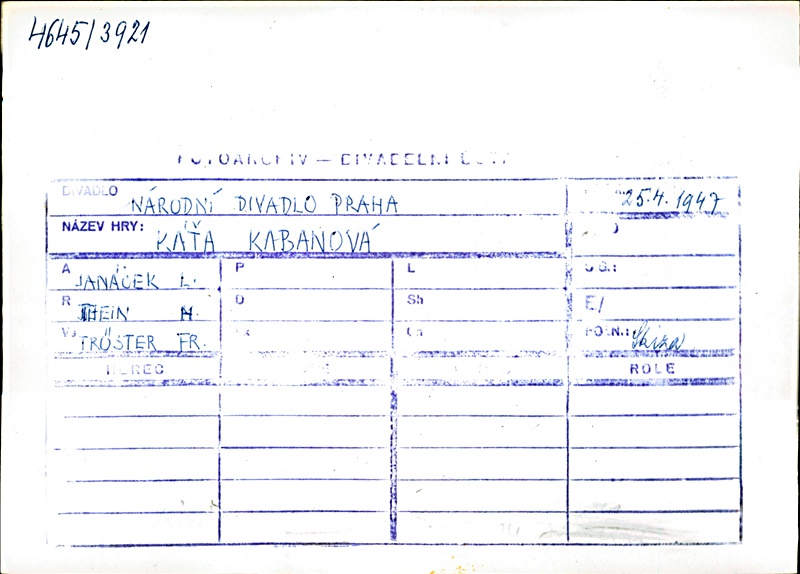 4645/3921
FOTOARCHIV — DIVADELNÍ
DIVADLO NÁRODNÍ DIVADLO PRAHA 25.4.1947
NÁZEV HRY: KÁŤA KABANOVÁ
A JANÁČEK L. P L Č.G.:
R THEIN H. D Sh E/
V TRÖSTER FR. POZN.: Skizza
HEREC ROLE